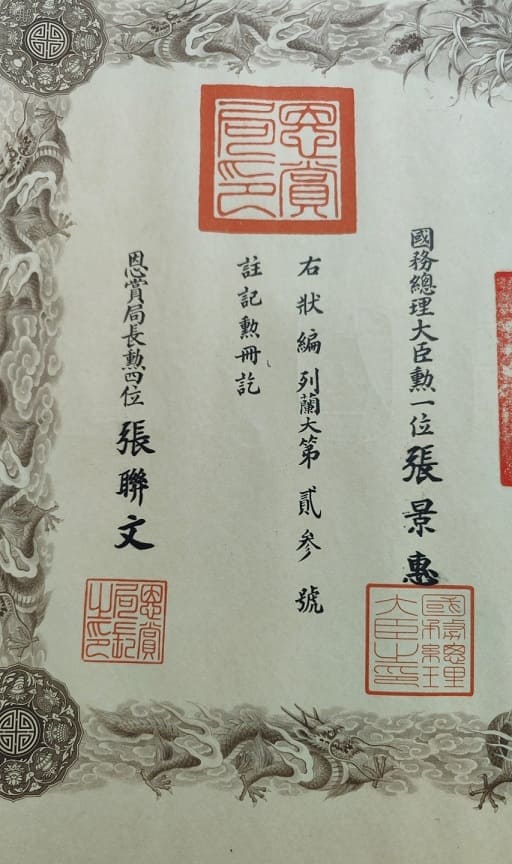 國務總理大臣勲一位 張景惠
國務總理大臣之印
恩賞局印
右狀編列蘭大第貳參號
註記勲冊訖
恩賞局長勲四位 張聯文
恩賞局長之印